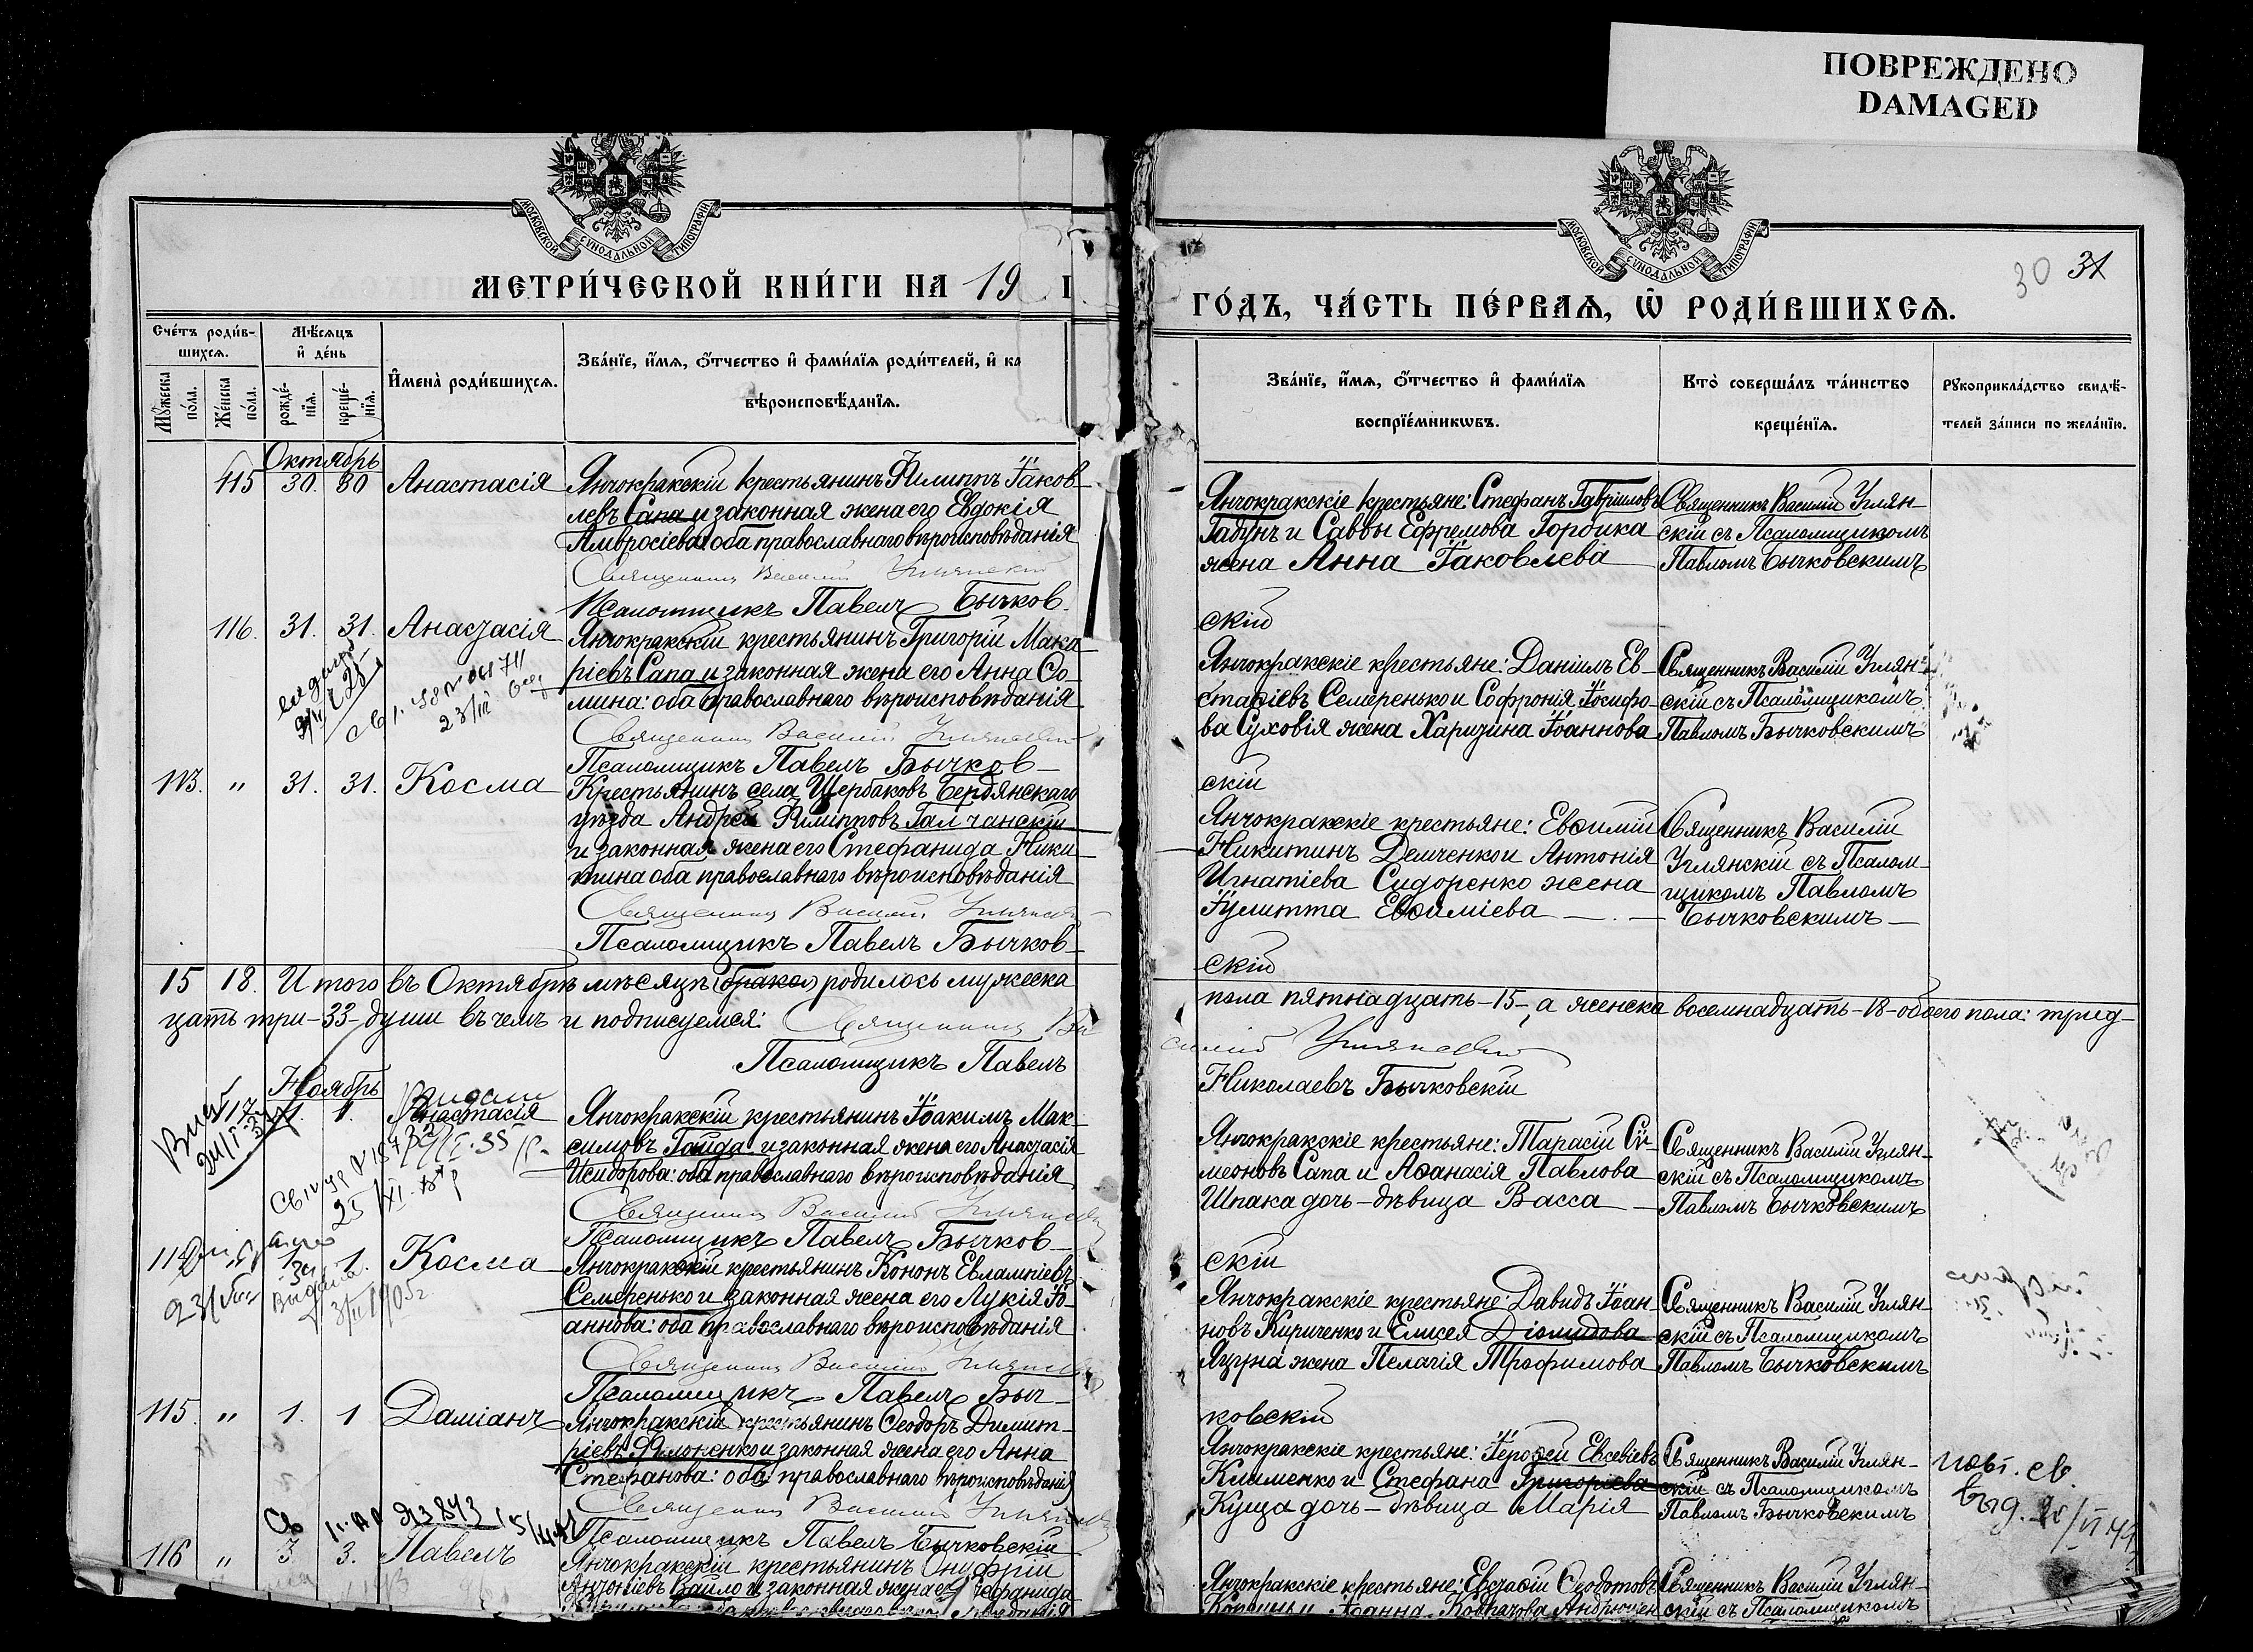 ПОВРЕЖДЕНО
DAMAGED
МОСКОВСКОЙ СѴНОДАЛЬНОЙ ТИПОГРАФІИ
МОСКОВСКОЙ СѴНОДАЛЬНОЙ ТИПОГРАФІИ
30 31
МЕТРИ́ЧЕСКОЙ КНИ́ГИ НА 19
ГО́ДЪ, ЧА́СТЬ ПЕ́РВАЯ, Ѿ РОДИ́ВШИХСЯ.
Сче́тъ роди́в-
шихся.
Мꙋ́жеска по́ла.
Же́нска по́ла.
Мѣ́сяцъ
и҆ де́нь
рожде́-
нїя.
креще́-
нїя.
И҆мена̀ роди́вшихся.
Зва́нїе, и҆́мя, ѻ҆́тчество и҆ фами́лїя роди́телей, и҆ ка
вѣроисповѣ́данїя.
Зва́нїе, и҆́мя, ѻ҆́тчество и҆ фами́лїя
воспрїе́мникѡвъ.
Кто̀ соверша́лъ та́инство
креще́нїя.
Рꙋкоприкла́дство свидѣ́-
телей за́писи по жела́нїю.
Октябрь
115 30. 30 Анастасія
Янчокракскій крестьянинъ Филиппъ Іаков-
левъ Сапа и законная жена его Евдокія
Амвросіева: оба православнаго вѣроисповѣданія
Священникъ Василій Углянскій
Псаломщикъ Павелъ Бычков-
Янчокракскіе крестьяне: Стефанъ Гавріиловъ
Габунъ и Саввы Ефремова Гордика
жена Анна Іаковлева
скій
Священникъ Василій Углян-
скій съ Псаломщикомъ
Павломъ Бычковскимъ
116. 31. 31. Анастасія
Янчокракскій крестьянинъ Григорій Мака-
ріевъ Сапа и законная жена его Анна Ѳо-
мина: оба православнаго вѣроисповѣданія
Священникъ Василій Углянскій
Псаломщикъ Павелъ Бычков-
Янчокракскіе крестьяне: Даніилъ Ев-
стафіевъ Семеренько и Софронія Іосифо-
ва Суховія жена Харитина Іоаннова
скій
Священникъ Василій Углян-
скій съ Псаломщикомъ
Павломъ Бычковскимъ
113. " 31. 31. Косма
Крестьянинъ села Щербаковъ Бердянскаго
уѣзда Андрей Филипповъ Галчанскій
и законная жена его Стефанида Ники-
тина оба православнаго вѣроисповѣданія
Священникъ Василій Углянскій
Псаломщикъ Павелъ Бычков-
Янчокракскіе крестьяне: Евѳимій
Никитинъ Демченко и Антонія
Игнатіева Сидоренко жена
Іулитта Евѳиміева
скій
Священникъ Василій
Углянскій съ Псалом-
щикомъ Павломъ
Бычковскимъ
15 18. Итого въ Октябрѣ мѣсяцѣ (браков) родилось мужеска
пола пятнадцать-15-, а женска восемнадцать-18-обоего пола: трид-
цать три-33-души въ чемъ и подписуемся: Священникъ Ва
силій Углянскій
Псаломщикъ Павелъ
Николаевъ Бычковскій
Ноябрь
1. Анастасія
Янчокракскій крестьянинъ Іоакимъ Мак-
симовъ Гайда и законная жена его Анастасія
Исидорова: оба православнаго вѣроисповѣданія
Священникъ Василій Углянскій
Псаломщикъ Павелъ Бычков-
Янчокракскіе крестьяне: Тарасій Си-
меоновъ Сапа и Аѳанасія Павлова
Шпака дочь-дѣвица Васса
скій
Священникъ Василій Углян-
скій съ Псаломщикомъ
Павломъ Бычковскимъ
1. 1. Косма
3/II 1905г
Янчокракскій крестьянинъ Кононъ Евлампіевъ
Семеренько и законная жена его Лукія Іо-
аннова: оба православнаго вѣроисповѣданія
Священникъ Василій Углянскій
Псаломщикъ Павелъ Быч-
Янчокракскіе крестьяне: Давидъ Іоан-
новъ Кириченко и Елисея Діомидова
Яцуна жена Пелагія Трофимова
ковскій
Священникъ Василій Углян-
скій съ Псаломщикомъ
Павломъ Бычковскимъ
115. " 1. 1 Даміанъ
Янчокракскій крестьянинъ Ѳеодоръ Димит-
ріевъ Филоненко и законная жена его Анна
Стефанова: оба православнаго вѣроисповѣданія
Священникъ Василій Углянскій
Псаломщикъ Павелъ Бычковскій
Янчокракскіе крестьяне: Іероѳей Евсевіевъ
Клименко и Стефана Григоріева
Куща дочь-дѣвица Марія
Священникъ Василій Углян-
скій съ Псаломщикомъ
Павломъ Бычковскимъ
116 " 3. 3. Павелъ
Янчокракскій крестьянинъ Онуфрій
Антоніевъ Вайло и законная жена его Стефанида
Янчокракскіе крестьяне: Евстафій Ѳеодотовъ
Священникъ Василій Углян-
скій съ Псаломщикомъ